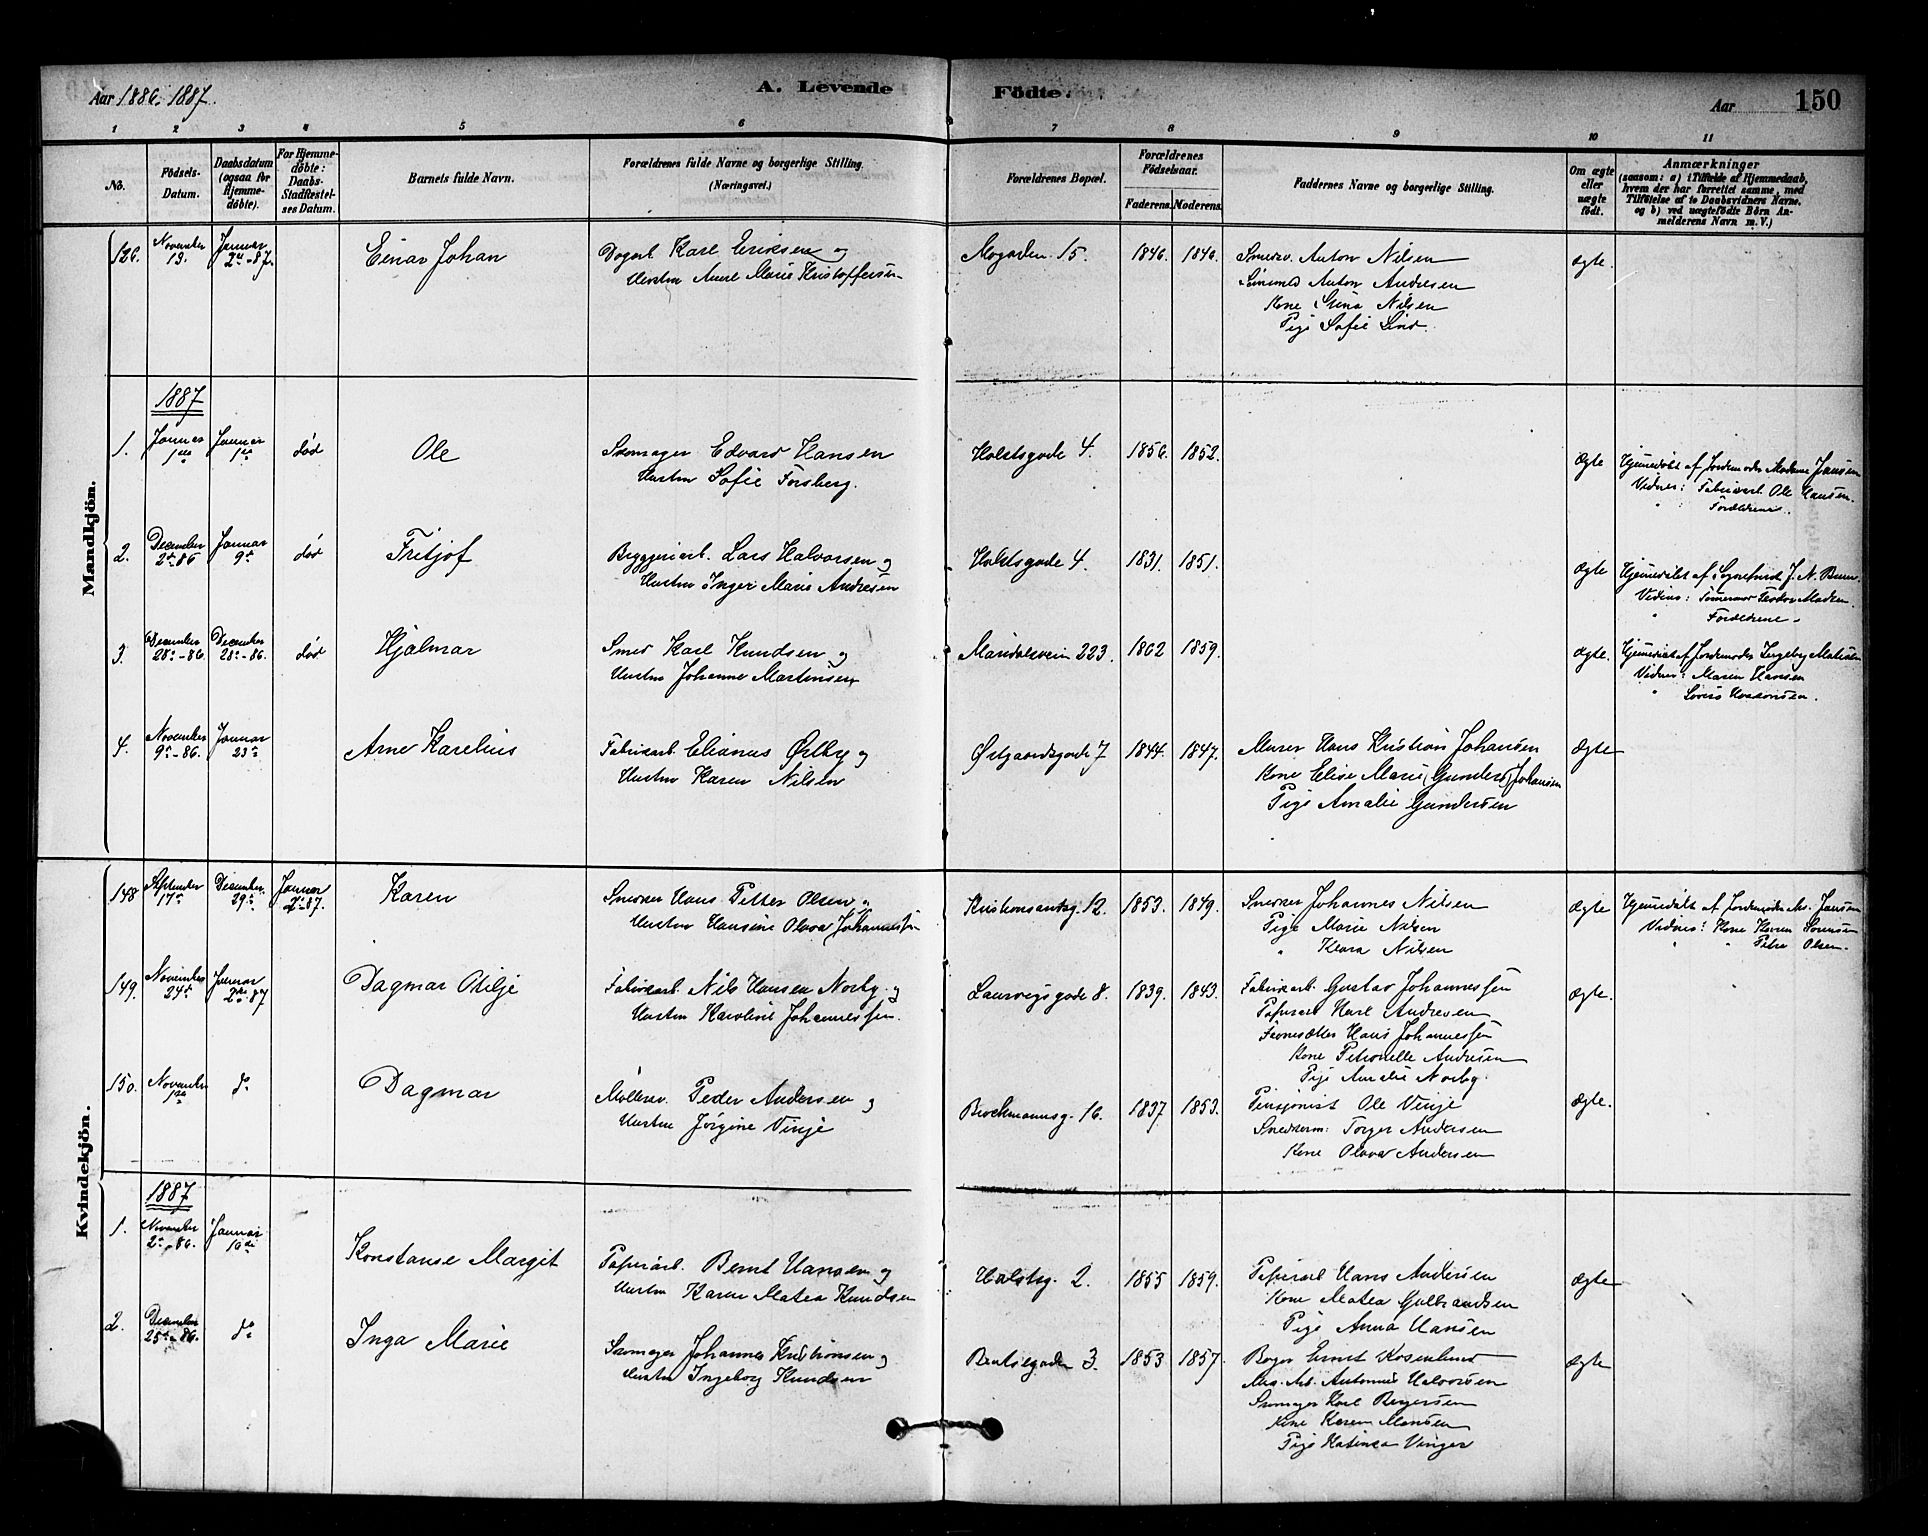 Aar 1886. 1887.
A. Levende Födte.
Aar 150
1 2 3 4 5 6 7 8 9 10 11
No.
Födsels-Datum.
Daabsdatum (ogsaa for Hjemme-döbte).
For Hjemme-döbte: Daabs-Stadfæstel-ses Datum.
Barnets fulde Navn.
Forældrenes fulde Navne og borgerlige Stilling. (Næringsvei.)
Forældrenes Bopæl.
Forældrenes Födselsaar.
Faderens. Moderens.
Faddernes Navne og borgerlige Stilling.
Om ægte eller uægte födt.
Anmærkninger
(saasom: a) i Tilfælde af Hjemmedaab, hvem der har forrettet samme, med Tilföielse af to Daabsvidners Navne, og b) ved uægtefödte Börn Anmelderens Navn m. V.)
Mandkjön.
126. November 19. Januar 2den 87. Einar Johan
Karl Eriksen og
Hustru Anne Marie Kristoffersen
Mogaden 15. 1846. 1846.
Anton Nilsen
Anton Andresen
Kone Stina Nilsen
Pige Sofie Lind.
ægte.
1887
1. Januar 1ste Januar 1ste død Ole
Skomager Edvard Hansen
Hustru Sofie Forsberg.
Holstsgade 4. 1856. 1852.
Ægte
Hjemmedøbt af Jordemoder Madame Jansen
Vidner: Fabrikarb. Ole Hansen.
" Forældrene.
2. December 2den 86 Januar 9de død Fritjof
Bryggeriarb. Lars Halvorsen og
Hustru Inger Marie Andresen
Holstsgade 4. 1831. 1851.
Ægte
Hjemmedøbt af Sogneprest J. N. Bruun.
Vidner: Tømmermand Teodor Madsen.
" Forældrene.
3. December 28de 86 December 28de 86. død Hjalmar
Smed Karl Knudsen og
Hustru Johanne Martensen
Maridalsveien 223. 1862 1859.
Ægte.
Hjemmedøbt af Jordemoder Ingeborg Mathisen
Vidner: Maren Hansen
4. November 9de 86. Januar 23de Arne Karelius
Fabrikarb. Elianus Østby og
Hustru Karen Nilsen
Østgaardsgade 7 1844. 1847.
Murer Hans Kristian Johansen
Kone Elise Marie (Gunders) Johansen
Pige Amalie Gundersen
Ægte
Kvindekjön.
148 September 17de December 29de Januar 2den 87. Karen
Snedker Hans Petter Olsen og
Hustru Hansine Olava Johannessen
Kristiansandsg. 12. 1853. 1849.
Snedker Johannes Nilsen
Pige Marie Nilsen
" Klara Nilsen
Ægte
Hjemmedøbt af Jordemoder Ms. Jansen
Vidner: Kone Karen Sørensen
" " Petra Olsen.
149. November 24de Januar 2den 87 Dagmar Otilje
Fabrikarb. Nils Hansen Norby og
Hustru Karoline Johannessen.
Laurvigsgade 8. 1839. 1843.
Fabrikarb. Gustav Johannessen
Papirarb. Karl Andresen
Hans Johannessen
Kone Petronelle Andresen
Pige Amalie Norby.
Ægte.
150. November 1ste do Dagmar
Møllerarb. Peder Andersen og
Hustru Jørgine Vinje
Brochmannsg. 16. 1837. 1853.
Pensjonist Ole Vinje
Snedkerm: Torger Andersen
Kone Olava Andersen
Ægte.
1887
1. November 2den 86. Januar 16de Konstanse Margit
Papirarb. Bernt Hansen og
Hustru Karen Matea Knudsen
Holstsg. 2. 1855 1859.
Papirarb. Hans Andersen
Kone Matea Gulbrandsen
Pige Anna Hansen
Ægte
2. December 25de 86. do Inga Marie
Skomager Johannes Kristiansen og
Hustru Ingeborg Knudsen
Bentsegaden 3. 1853 1857.
Bager Ernst Rosenlund
Antonius Halvorsen
Skomager Karl Birgersen
Kone Karen Monsen
Pige Katinka Vinger
Ægte